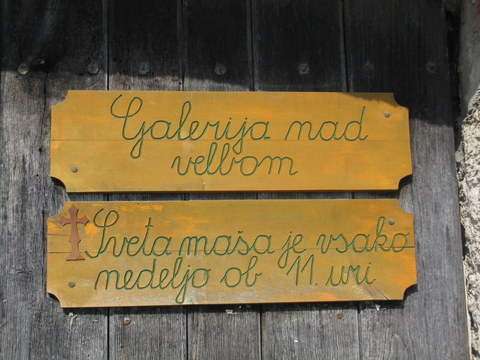 Galerija nad
velbom
Sveta maša je vsako
nedeljo ob 11. uri